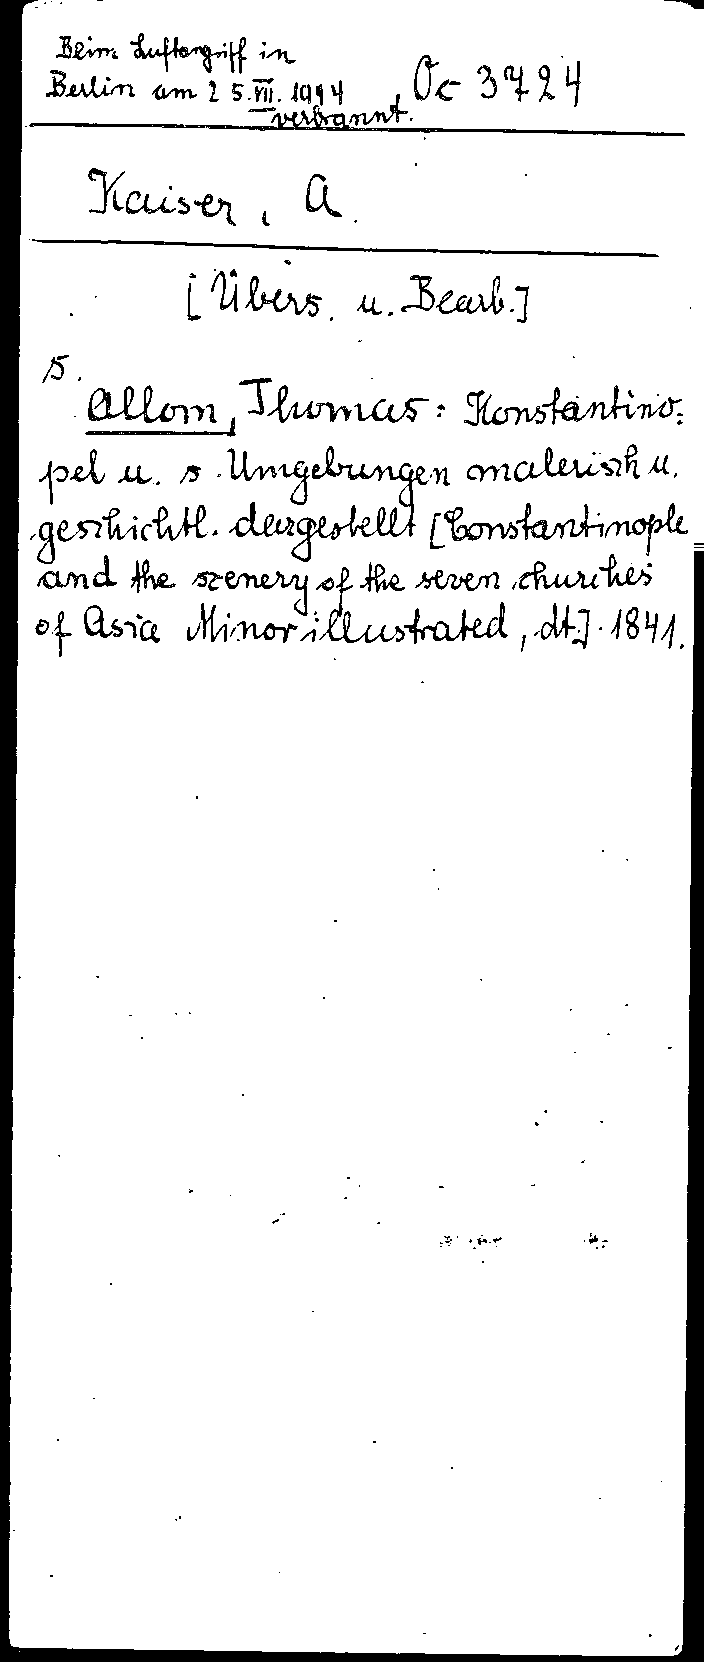 Beim Luftangriff in
Berlin am 25.VII.1944 Oc 3724
verbrannt.
Kaiser, A.
[Übers. u. Bearb.]
s.
Allom, Thomas: Konstantino-
pel u. s. Umgebungen malerisch u.
geschichtl. dargestellt [Constantinople
and the scenery of the seven churches
of Asia Minor illustrated, dt.]. 1841.